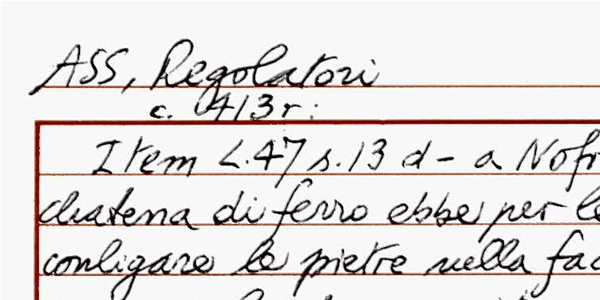 ASS, Regolatori
c. 413r:
Item L.47 s.13 d- a Nofr
chatena di ferro ebbe per le
conligare le pietre nella fac